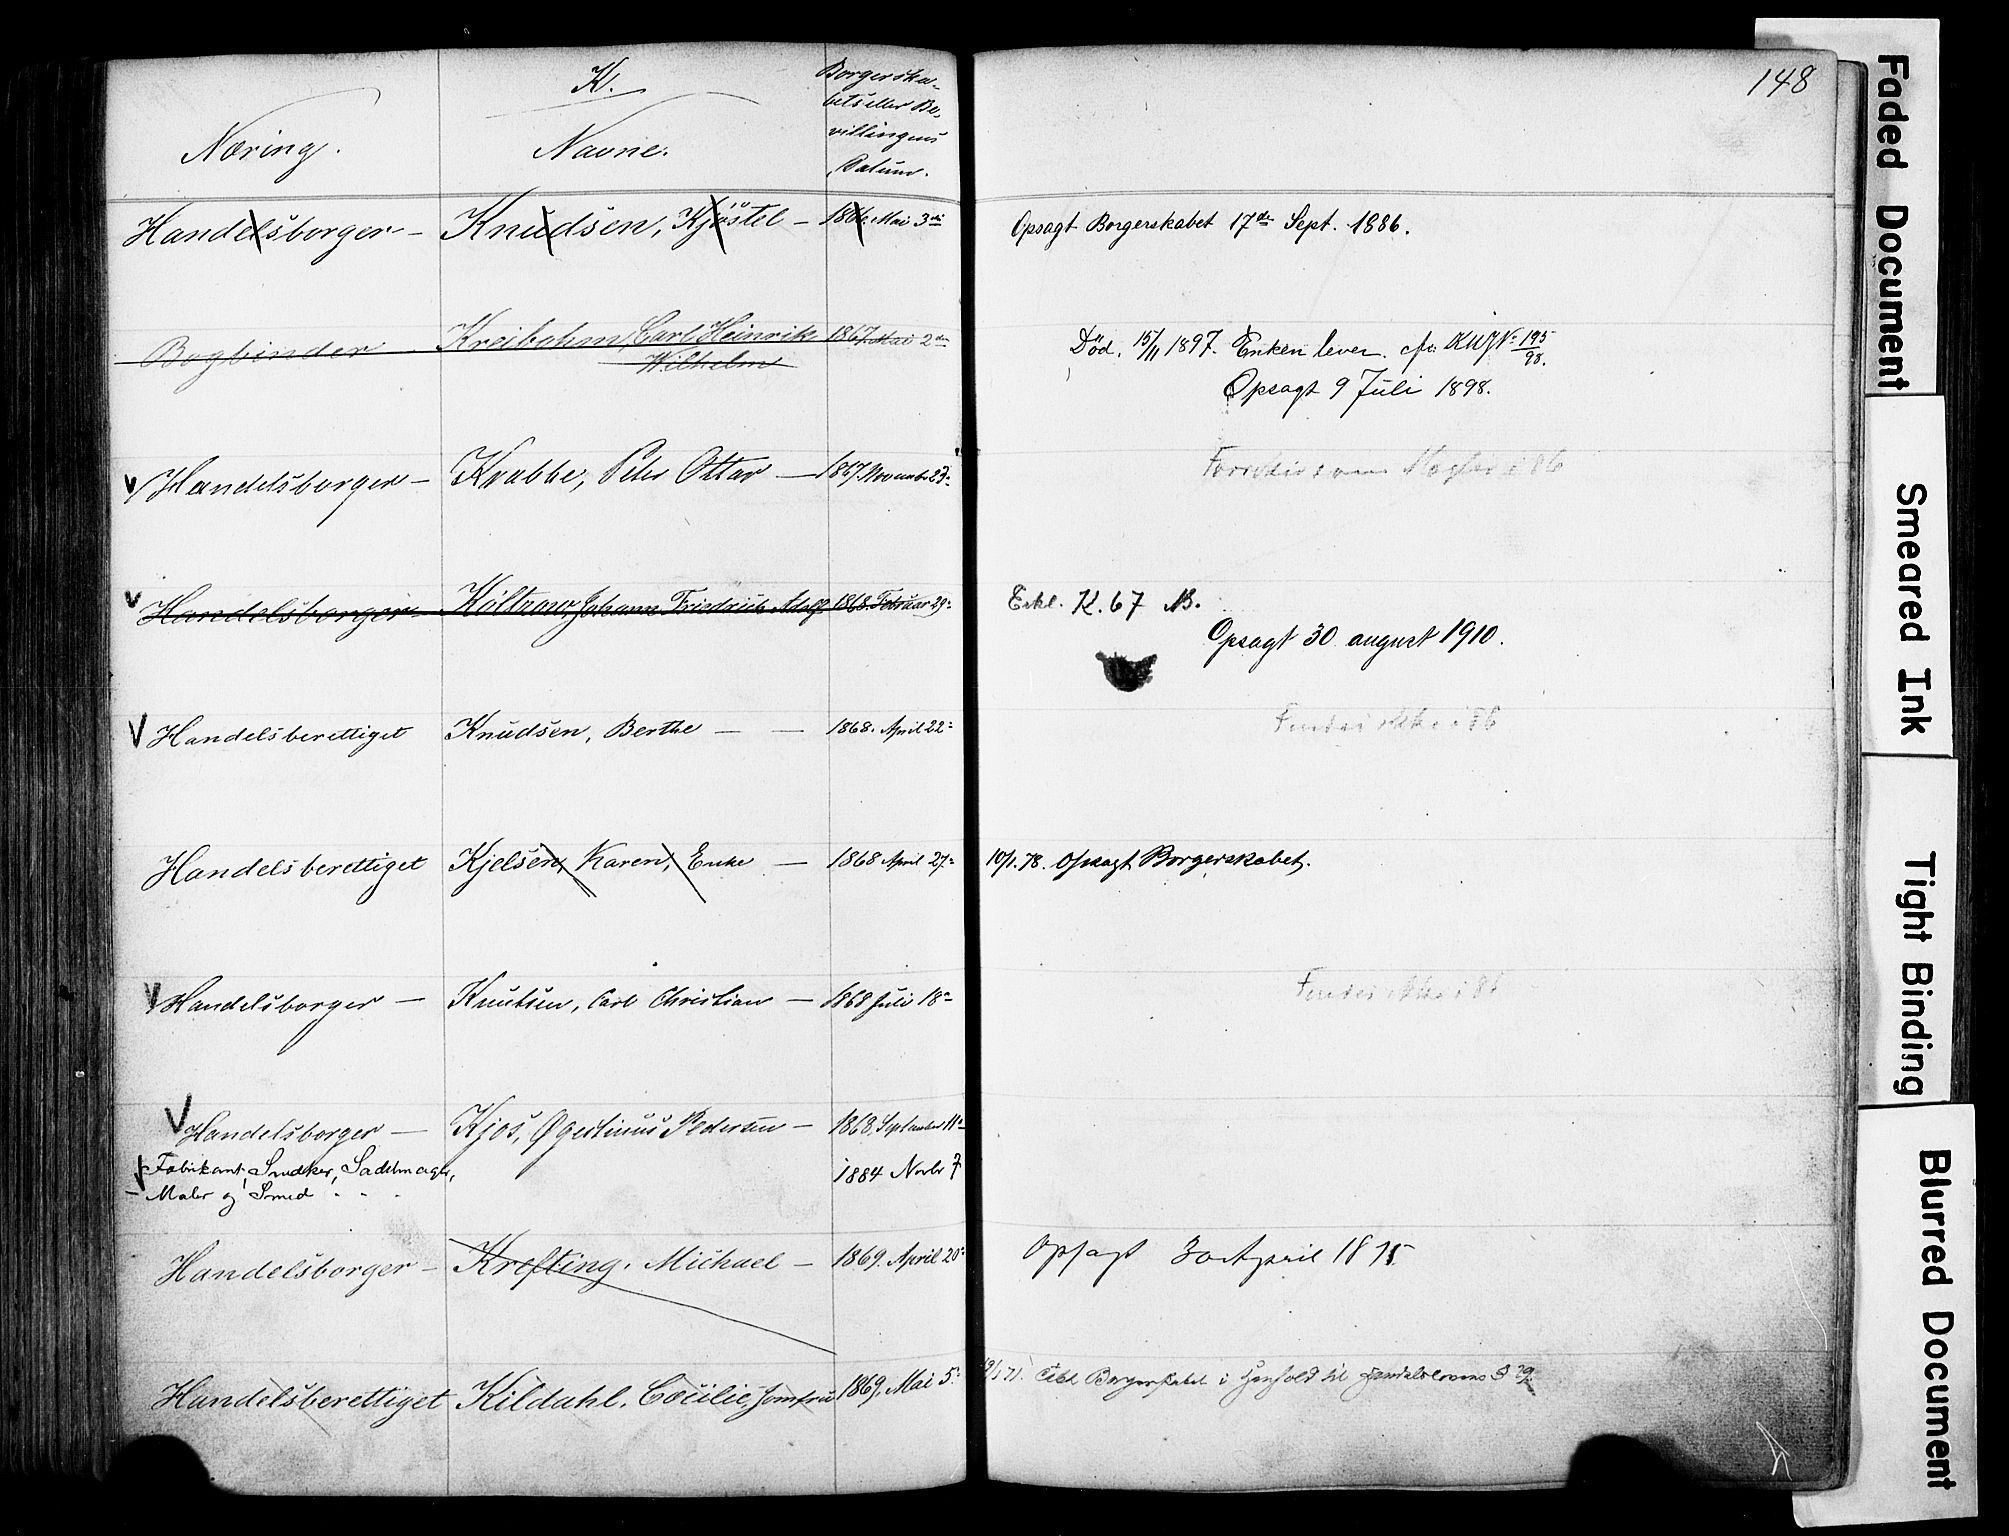 K.
Næring.
Navne.
Borgerska-
bets eller Be-
villingens
Datum.
148
Handelsborger - Knudsen, Kjöstel - 1866. Mai 3die
Opsagt Borgerskabet 17de Sept. 1886.
Bogbinder Kreibohm, Carl Heinrik 1867. Mai 2den
Wilhelm
Død. 15/11 1897. Enken lever. cfr. 195/98.
Opsagt 9 Juli 1898.
V Handelsborger - Krabbe, Peter Ottar - 1867. November 23=
i 86
V Handelsborger - Költzow, Johann Friedrich Adolf 1868. Februar 29=
Erkl. K. 67 AB.
Opsagt 30 august 1910.
V Handelsberettiget Knudsen, Berthe - - 1868. April 22=
Findes ikke i 86
Handelsberettiget Kjelsen, Karen, Enke - 1868 April 27=
10/1. 78. Opsagt Borgerskabet.
V Handelsborger - Knutsen, Carl Christian - 1868 Juli 18=
Findes ikke i 86
V Handelsborger - Kjos, Øgertinus Pedersen - 1868. September 11=
Fabrikant, Snedker, Sadelmager,
1884 Novbr 7
- Maler og Smed " " "
Handelsborger - Krefting, Michael - 1869. April 20=
Opsagt 30 April 1875
Handelsberettiget Kildahl, Cæcilie, Jomfru 1869. Mai 5=
71. Borgerskabet i Henhold til Handelslovens § 29
Faded Document
Smeared Ink
Tight Binding
Blurred Document